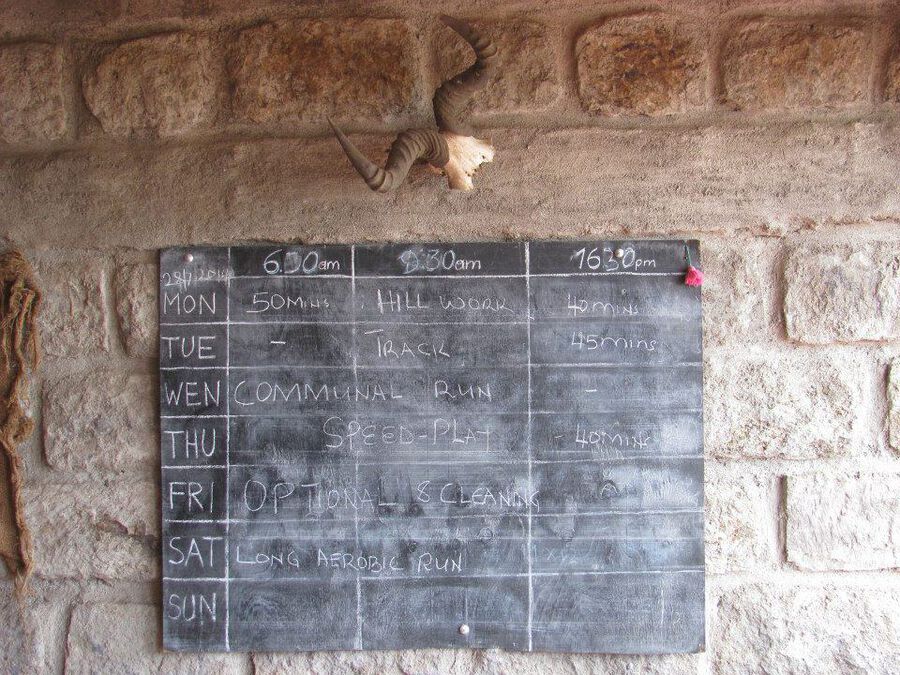 6.30am 9.30am 16.30pm
28/7/2014
MON 50MINS HILL WORK 40mins
TUE – TRACK 45mins
WEN COMMUNAL RUN –
THU SPEED-PLAT - 40MINS
FRI OPTIONAL & CLEANING
SAT LONG AEROBIC RUN
SUN